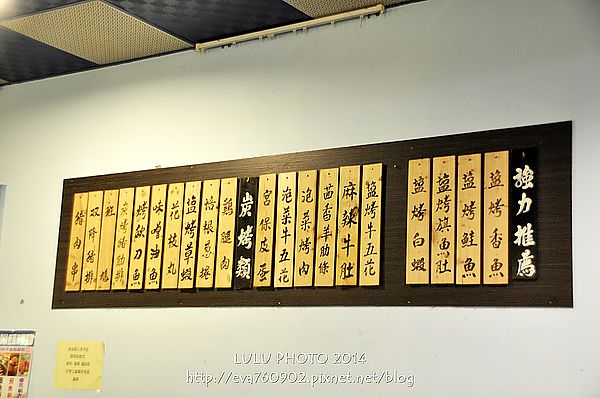 強力推薦
盐烤香魚
盐烤鮭魚
盐烤旗魚肚
盐烤白蝦
盐烤牛五花
麻辣牛肚
茴香羊肋條
泡菜烤肉
泡菜牛五花
宮保皮蛋
炭烤類
鷄腿肉
培根蔥捲
盐烤草蝦
花枝丸
味噌油魚
烤秋刀魚
炭烤豬肋排
豬肉串
LULU PHOTO 2014
http://eva760902.pixnet.net/blog